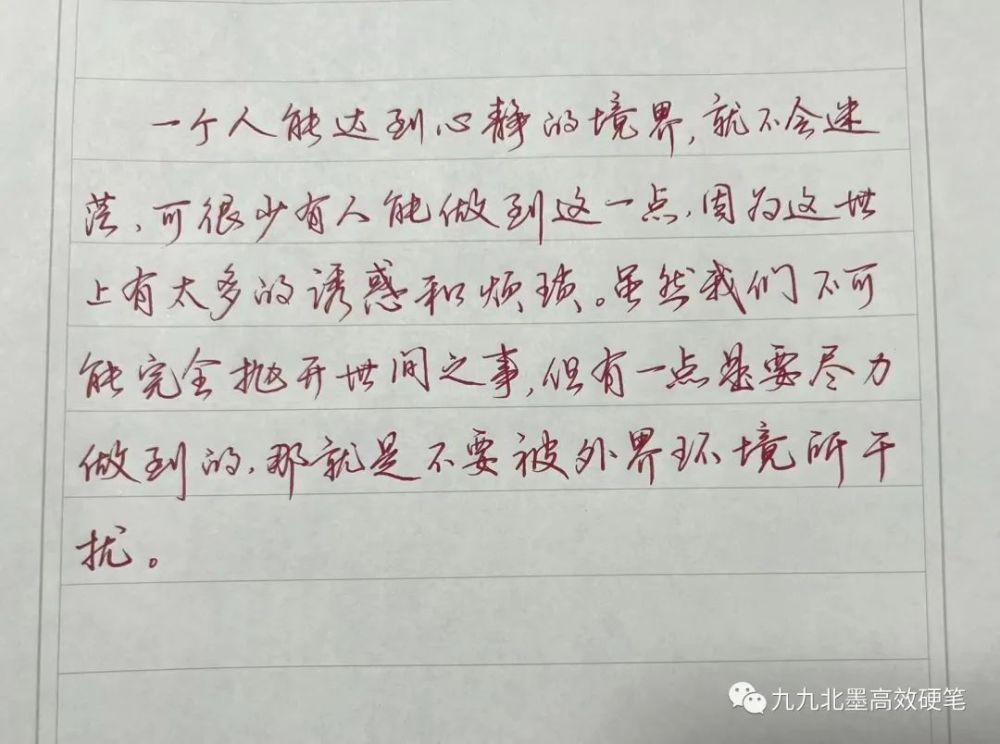 一个人能达到心静的境界,就不会迷
茫,可很少有人能做到这一点,因为这世
上有太多的诱惑和烦琐。虽然我们不可
能完全抛开世间之事,但有一点是要尽力
做到的,那就是不要被外界环境所干
扰。
九九北墨高效硬笔